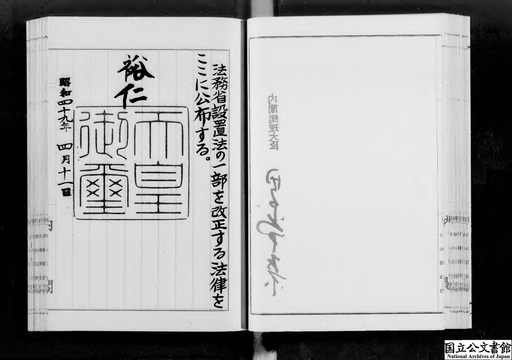 法務省設置法の一部を改正する法律を
ここに公布する。
裕仁
天皇
御璽
昭和四十九年 四月十一日
内閣総理大臣
国立公文書館
National Archives of Japan